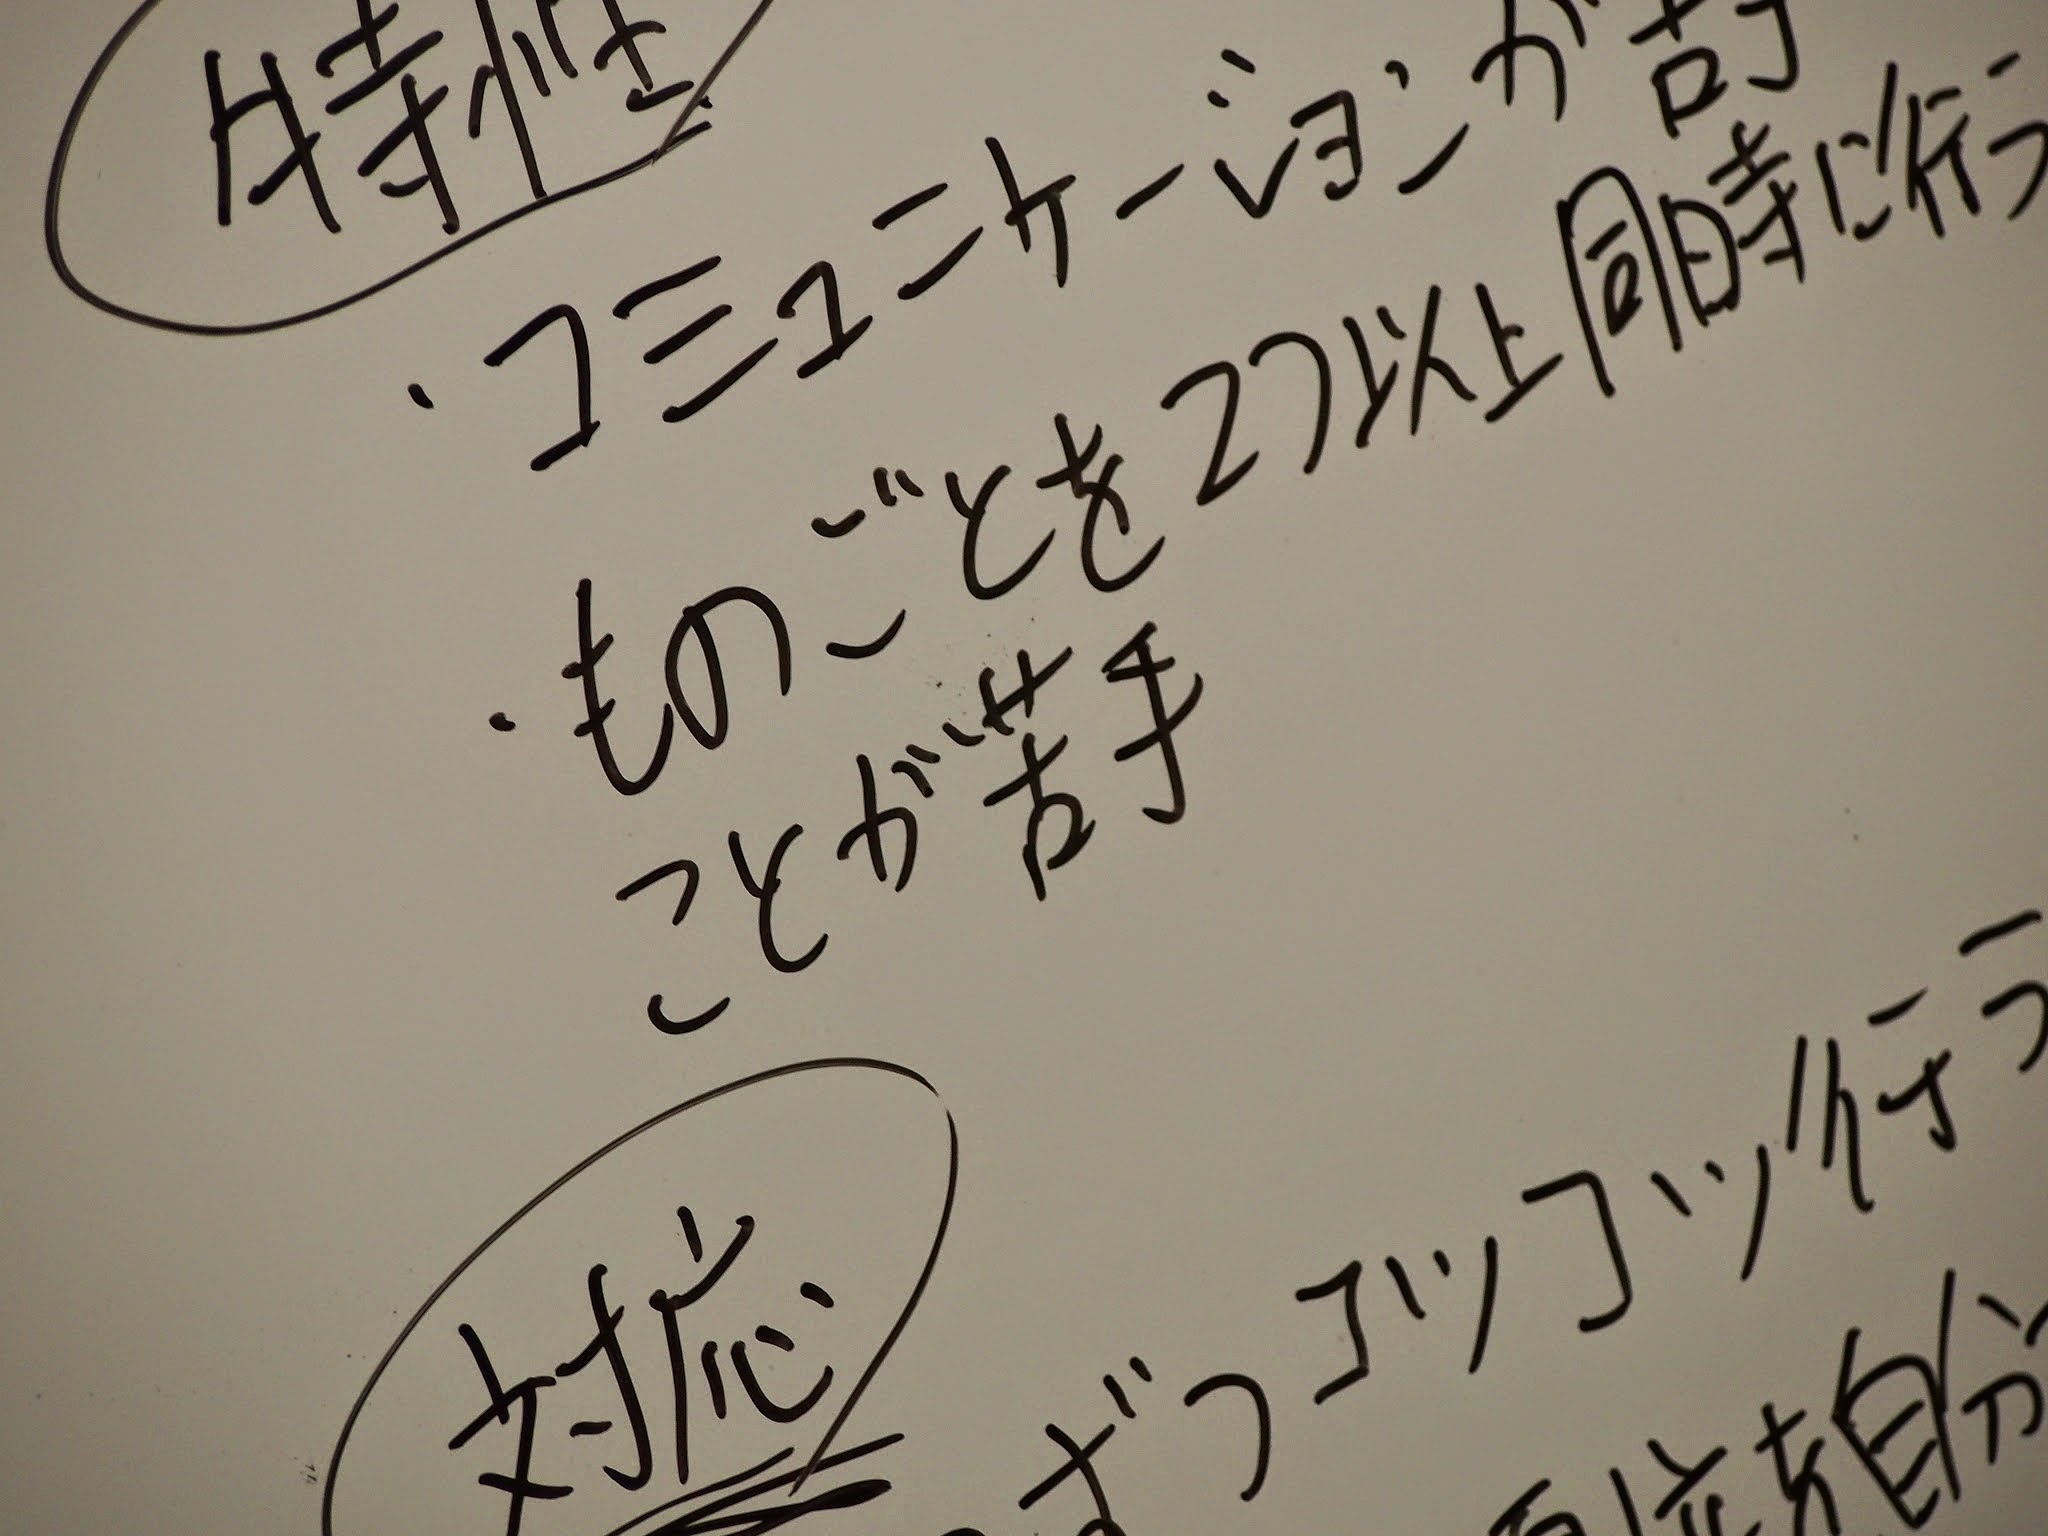 特性
・コミュニケーションが苦
・ものごとを2つ以上同時に行う
ことが苦手
対応
ずつコツコツ行う
を自分